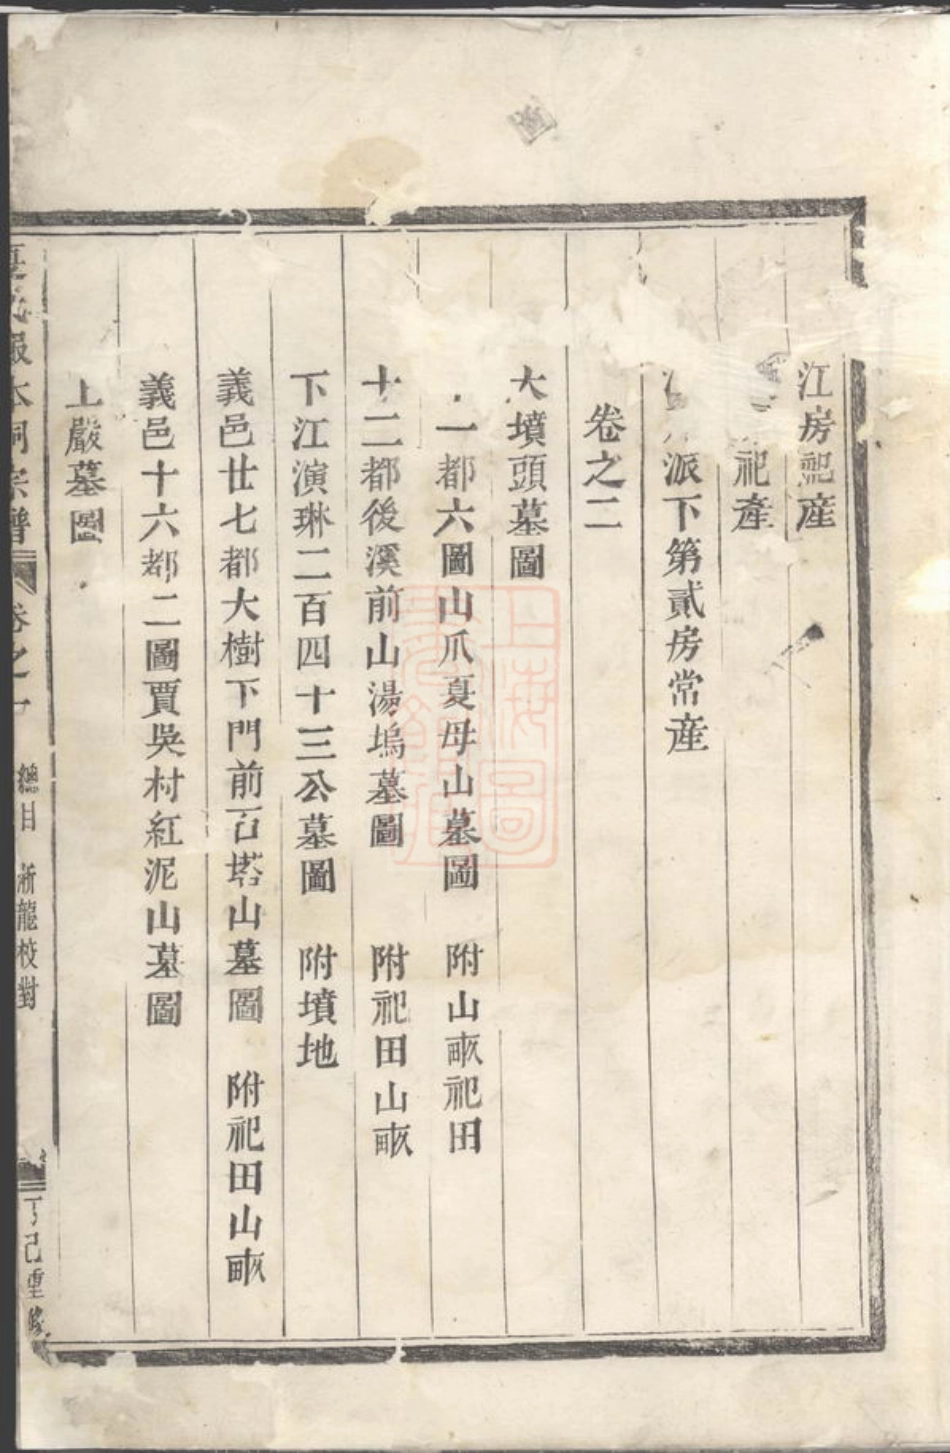 江房祀産
祀産
派下第貳房常産
卷之二
大墳頭墓圖
一都六圖山爪夏母山墓圖 附山畝祀田
十二都後溪前山湯塢墓圖 附祀田山畝
下江演琳二百四十三公墓圖 附墳地
義邑廿七都大樹下門前石塔山墓圖 附祀田山畝
義邑十六都二圖賈吳村紅泥山墓圖
上嚴墓圖
氏報本祠宗譜 卷之一 總目 浙龍校對 丁巳重修
上海圖書館藏